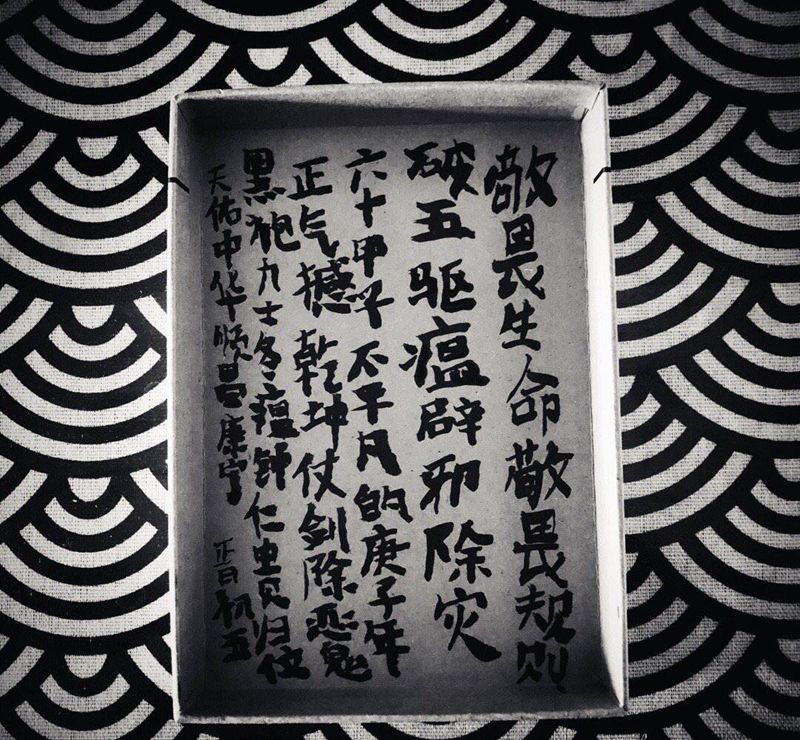 敬畏生命敬畏规则
破五驱瘟辟邪除灾
六十甲子不平凡的庚子年
正气撼乾坤仗剑除恶鬼
黑袍力士冬瘟钟仁贵归位
天佑中华顺昌康宁 正月初五